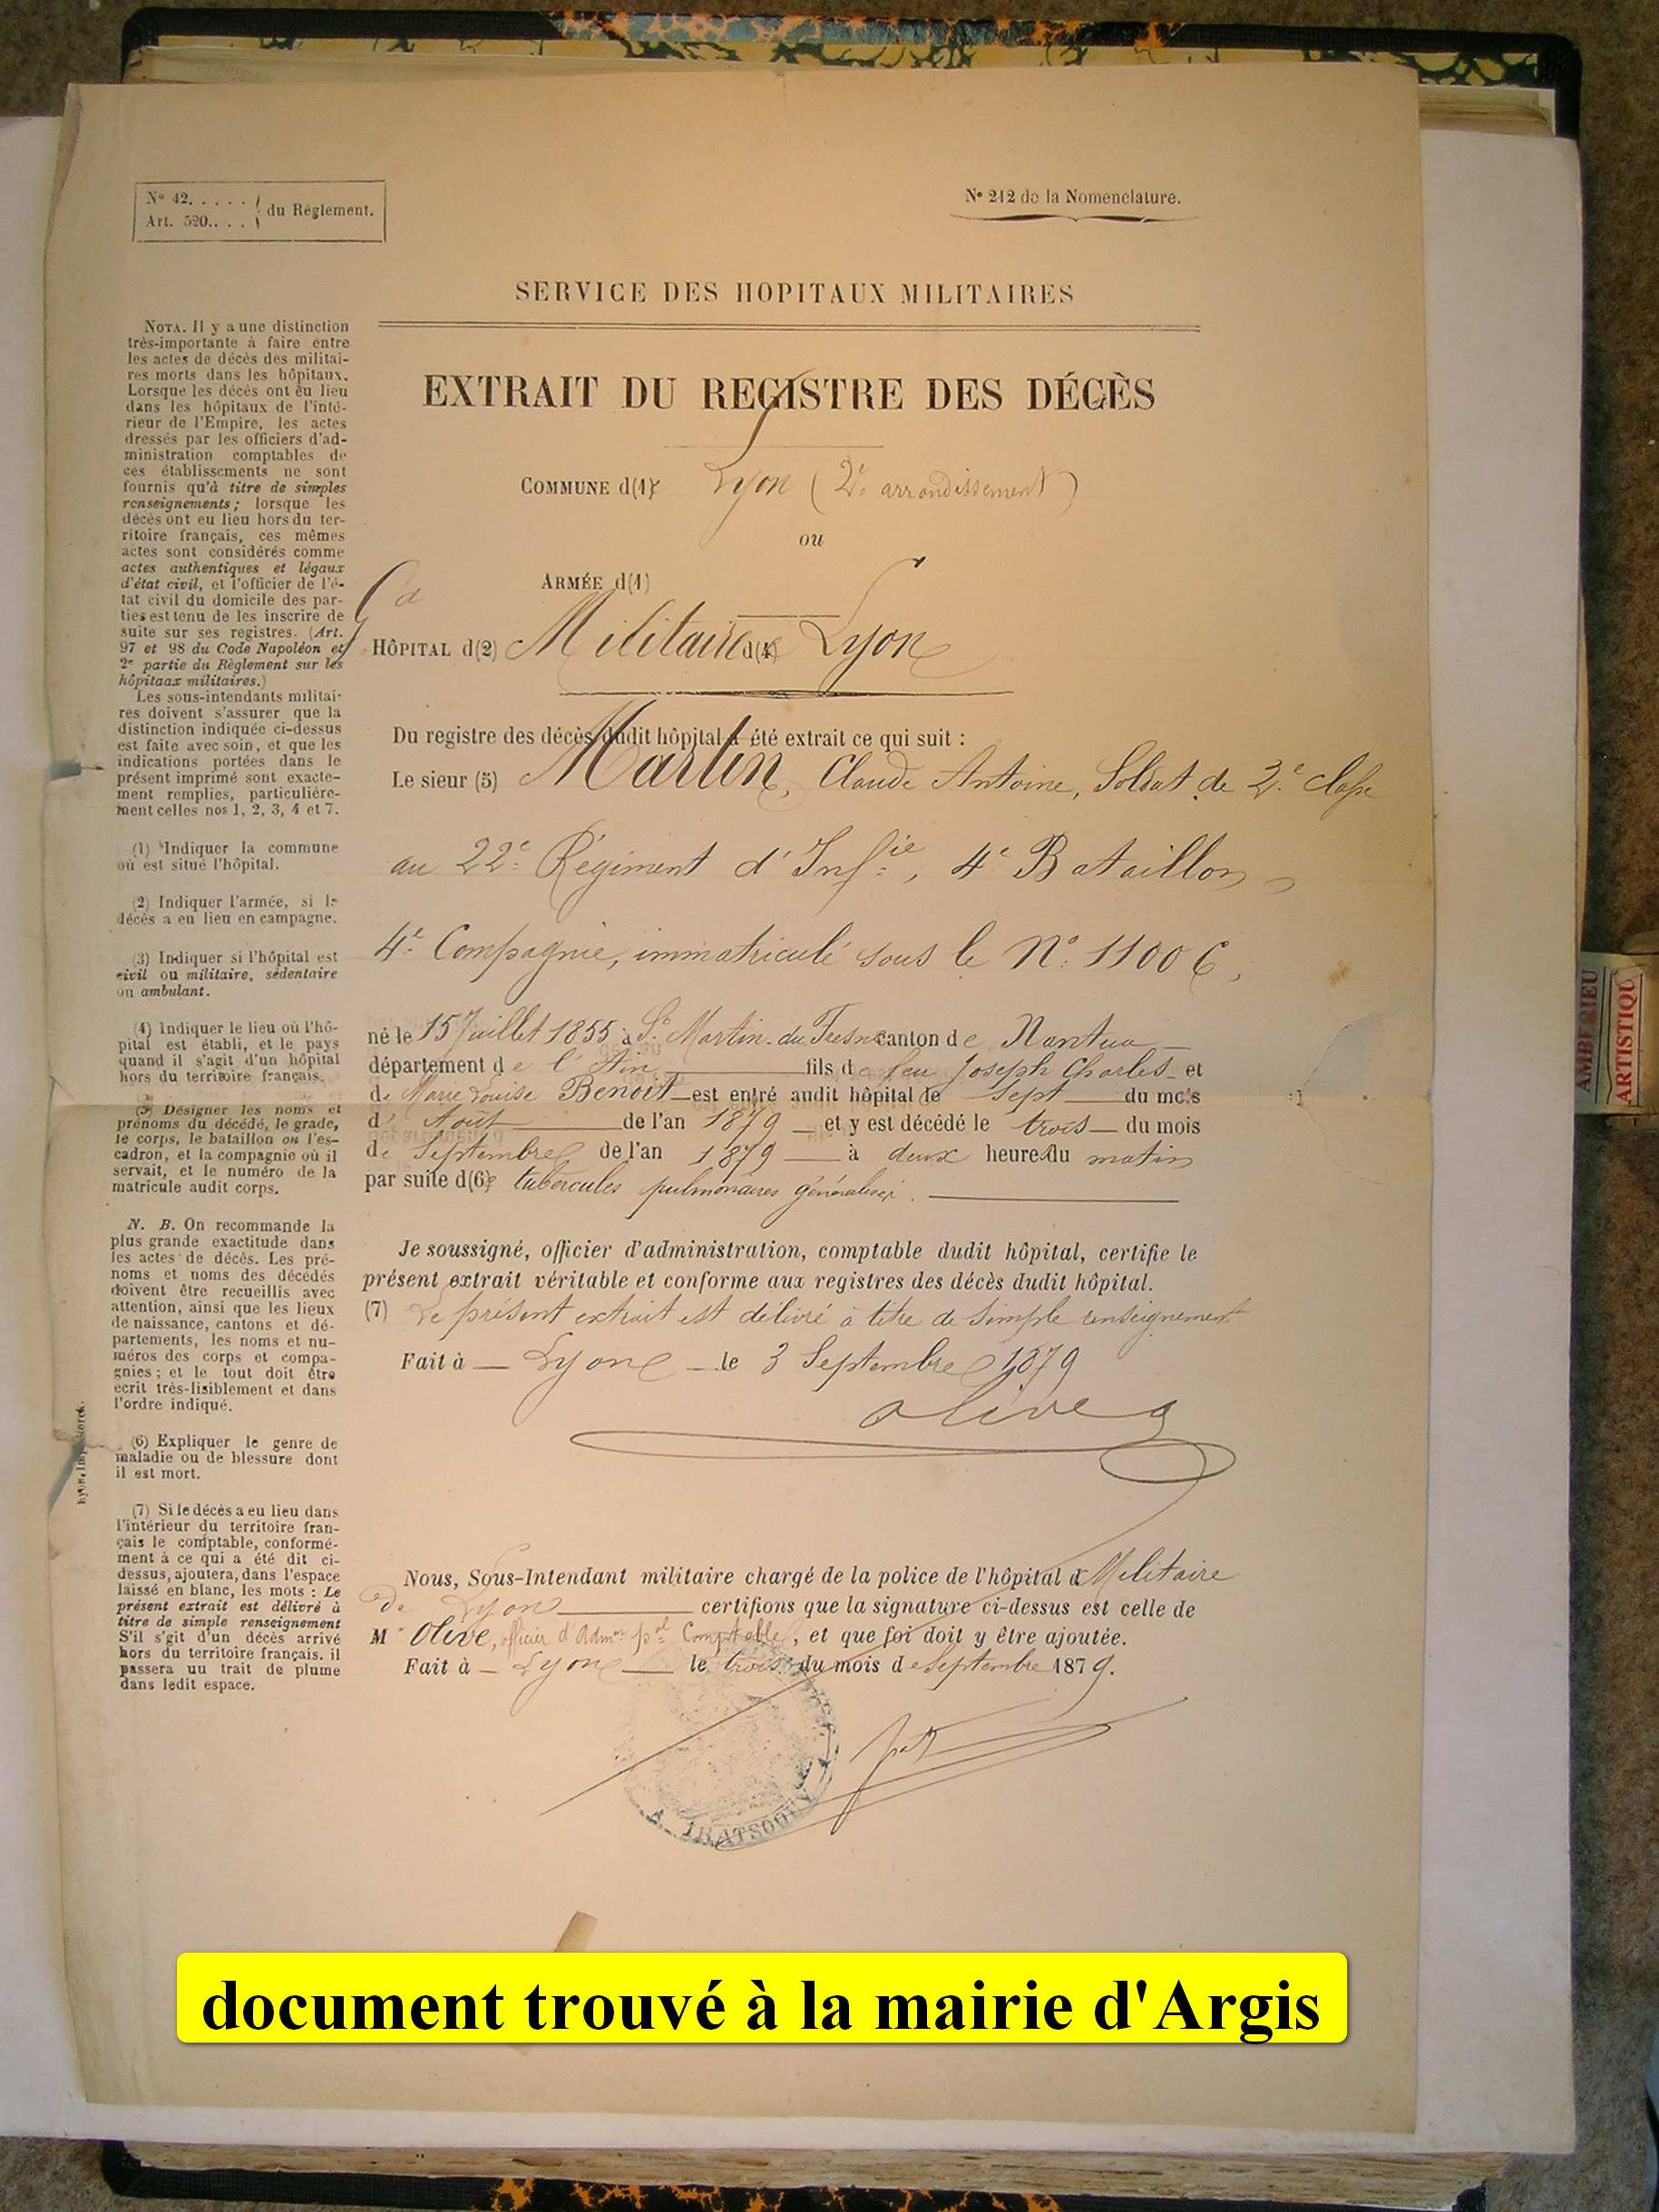 N° 42. . . . .
Art. 520.. . .
du Règlement.
N° 212 de la Nomenclature.
SERVICE DES HOPITAUX MILITAIRES
EXTRAIT DU REGISTRE DES DÉCÈS
COMMUNE d(1)e Lyon (2e arrondissement)
ou
ARMÉE d(1)
HÔPITAL d(2) Militaire d(4)e Lyon
Du registre des décès dudit hôpital a été extrait ce qui suit :
Le sieur (5) Martin, Claude Antoine, Soldat de 2e classe
au 22e Régiment d'Infie, 4e Bataillon
4e Compagnie, immatriculé sous le N° 11006,
né le 15 Juillet 1855 à St Martin-du-Fresne canton de Nantua
département de l'Ain fils de feu Joseph Charles et
de Marie Louise Benoit est entré audit hôpital le sept du mois
d'Août de l'an 1879 et y est décédé le trois du mois
de Septembre de l'an 1879 à deux heures du matin
par suite d(6)e tubercules pulmonaires généralisés.
Je soussigné, officier d'administration, comptable dudit hôpital, certifie le
présent extrait véritable et conforme aux registres des décès dudit hôpital.
(7) Le présent extrait est délivré à titre de simple renseignement
Fait à Lyon le 3 Septembre 1879
Olive
Nous, Sous-Intendant militaire chargé de la police de l'hôpital d Militaire
de Lyon certifions que la signature ci-dessus est celle de
M Olive, officier d'Admon pal Comptable, et que foi doit y être ajoutée.
Fait à Lyon le trois du mois de Septembre 1879.
NOTA. Il y a une distinction
très-importante à faire entre
les actes de décès des militai-
res morts dans les hôpitaux.
Lorsque les décès ont eu lieu
dans les hôpitaux de l'inté-
rieur de l'Empire, les actes
dressés par les officiers d'ad-
ministration comptables de
ces établissements ne sont
fournis qu'à titre de simples
renseignements ; lorsque les
décès ont eu lieu hors du ter-
ritoire français, ces mêmes
actes sont considérés comme
actes authentiques et légaux
d'état civil, et l'officier de l'é-
tat civil du domicile des par-
ties est tenu de les inscrire de
suite sur ses registres. (Art.
97 et 98 du Code Napoléon et
2e partie du Règlement sur les
hôpitaux militaires.)
Les sous-intendants militai-
res doivent s'assurer que la
distinction indiquée ci-dessus
est faite avec soin, et que les
indications portées dans le
présent imprimé sont exacte-
ment remplies, particulière-
ment celles nos 1, 2, 3, 4 et 7.
(1) Indiquer la commune
où est situé l'hôpital.
(2) Indiquer l'armée, si le
décès a eu lieu en campagne.
(3) Indiquer si l'hôpital est
civil ou militaire, sédentaire
ou ambulant.
(4) Indiquer le lieu où l'hô-
pital est établi, et le pays
quand il s'agit d'un hôpital
hors du territoire français.
(5) Désigner les noms et
prénoms du décédé, le grade,
le corps, le bataillon ou l'es-
cadron, et la compagnie où il
servait, et le numéro de la
matricule audit corps.
N. B. On recommande la
plus grande exactitude dans
les actes de décès. Les pré-
noms et noms des décédés
doivent être recueillis avec
attention, ainsi que les lieux
de naissance, cantons et dé-
partements, les noms et nu-
méros des corps et compa-
gnies ; et le tout doit être
écrit très-lisiblement et dans
l'ordre indiqué.
(6) Expliquer le genre de
maladie ou de blessure dont
il est mort.
(7) Si le décès a eu lieu dans
l'intérieur du territoire fran-
çais le comptable, conformé-
ment à ce qui a été dit ci-
dessus, ajoutera, dans l'espace
laissé en blanc, les mots : Le
présent extrait est délivré à
titre de simple renseignement
S'il s'git d'un décès arrivé
hors du territoire français. il
passera uu trait de plume
dans ledit espace.
AMBERIEU
ARTISTIQU
document trouvé à la mairie d'Argis